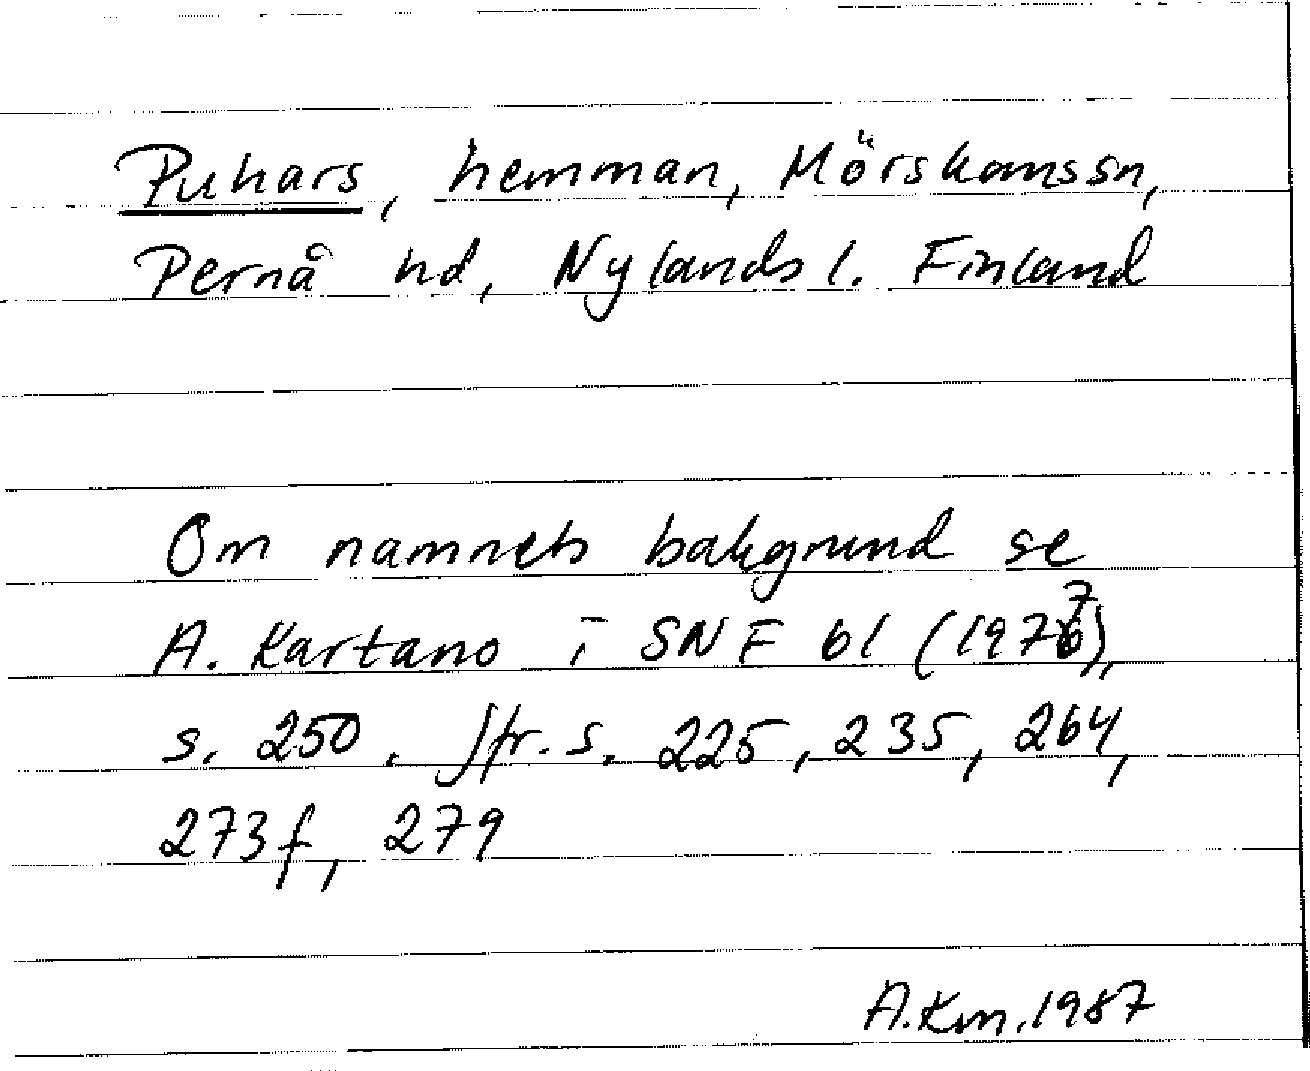 Puhars, hemman, Mörskomssn,
Pernå hd, Nylands l. Finland
Om namnets bakgrund se
A. Kartano i SNF 61 (1977),
s. 250. Jfr. s. 225, 235, 264,
273f, 279
A.Km.1987